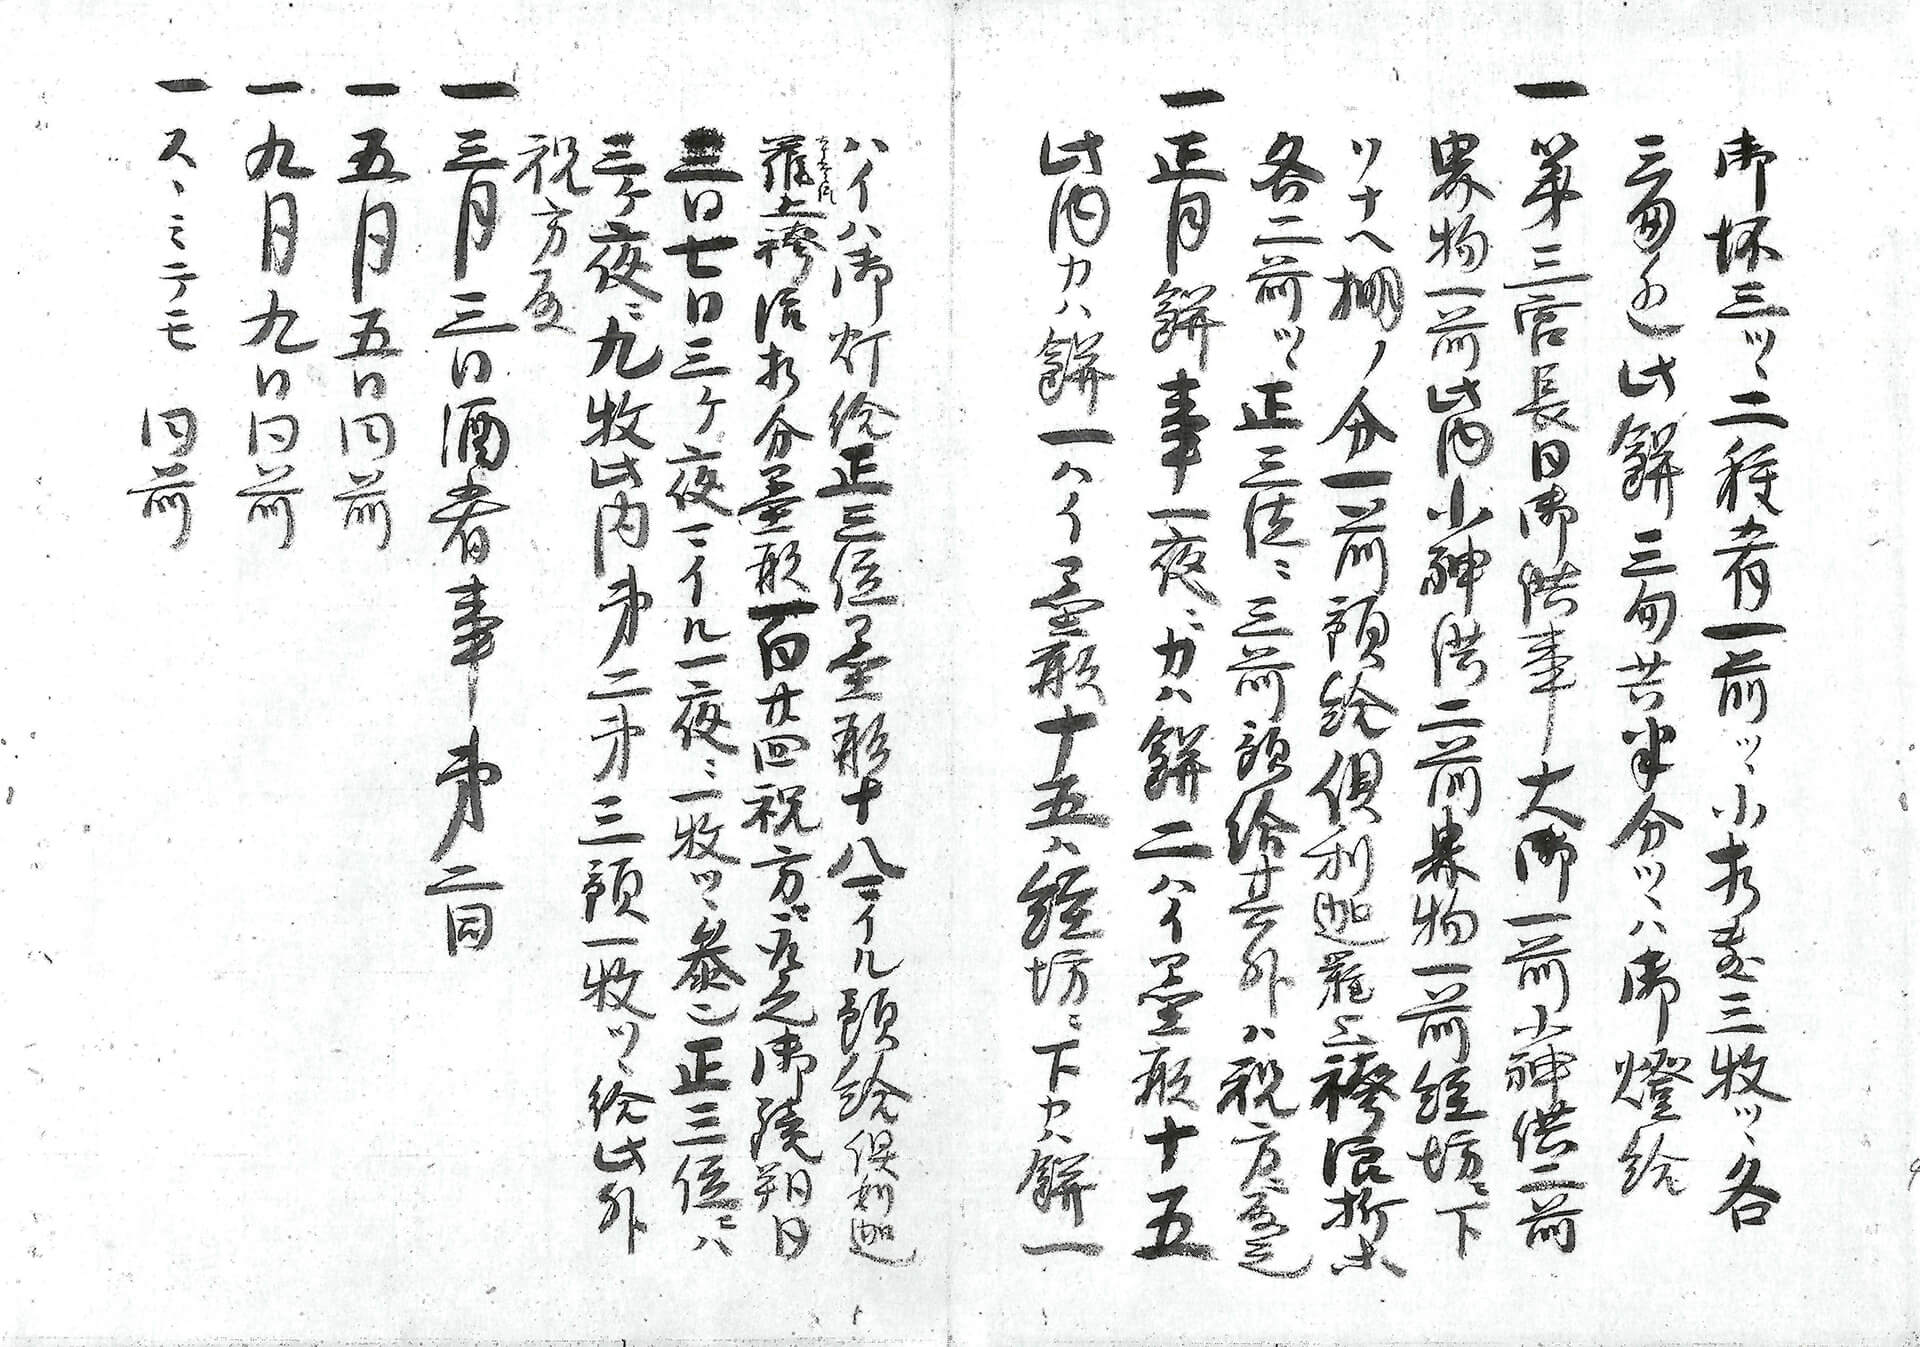 御坏三ツヽ二種肴一前ツヽ小折敷三枚ツヽ各
三角也此餅三旬共半分ツヽハ御燈給
一第三宮長日御供事大御一前小神供二前
菓物一前此内小神供二前菓物一前経坊ニ下
ソナヘ棚ノ分一前預給倶利迦羅上襷 折
各二前ツヽ正三位ニ三前預給其外ハ祝方ニ
一正月餅事一夜ニカハ餅二ハイ墨形十五
此内カハ餅一ハイ墨形十五ハ経坊ニ下カハ餅一
ハイハ御灯給正三位墨形十八ニイル預給倶利迦
羅上襷 折分墨形一百廿四祝方ニ 之御 朔日
三日七日三ケ夜ニイル一夜ニ一枚ツヽ参ニ正三位ニハ
三ケ夜ニ九枚此内弟二弟三預一枚ツヽ給此外
祝方
一三月三日酒肴事弟二同
一五月五日同前
一九月九日同前
一スヽミニテモ 同前